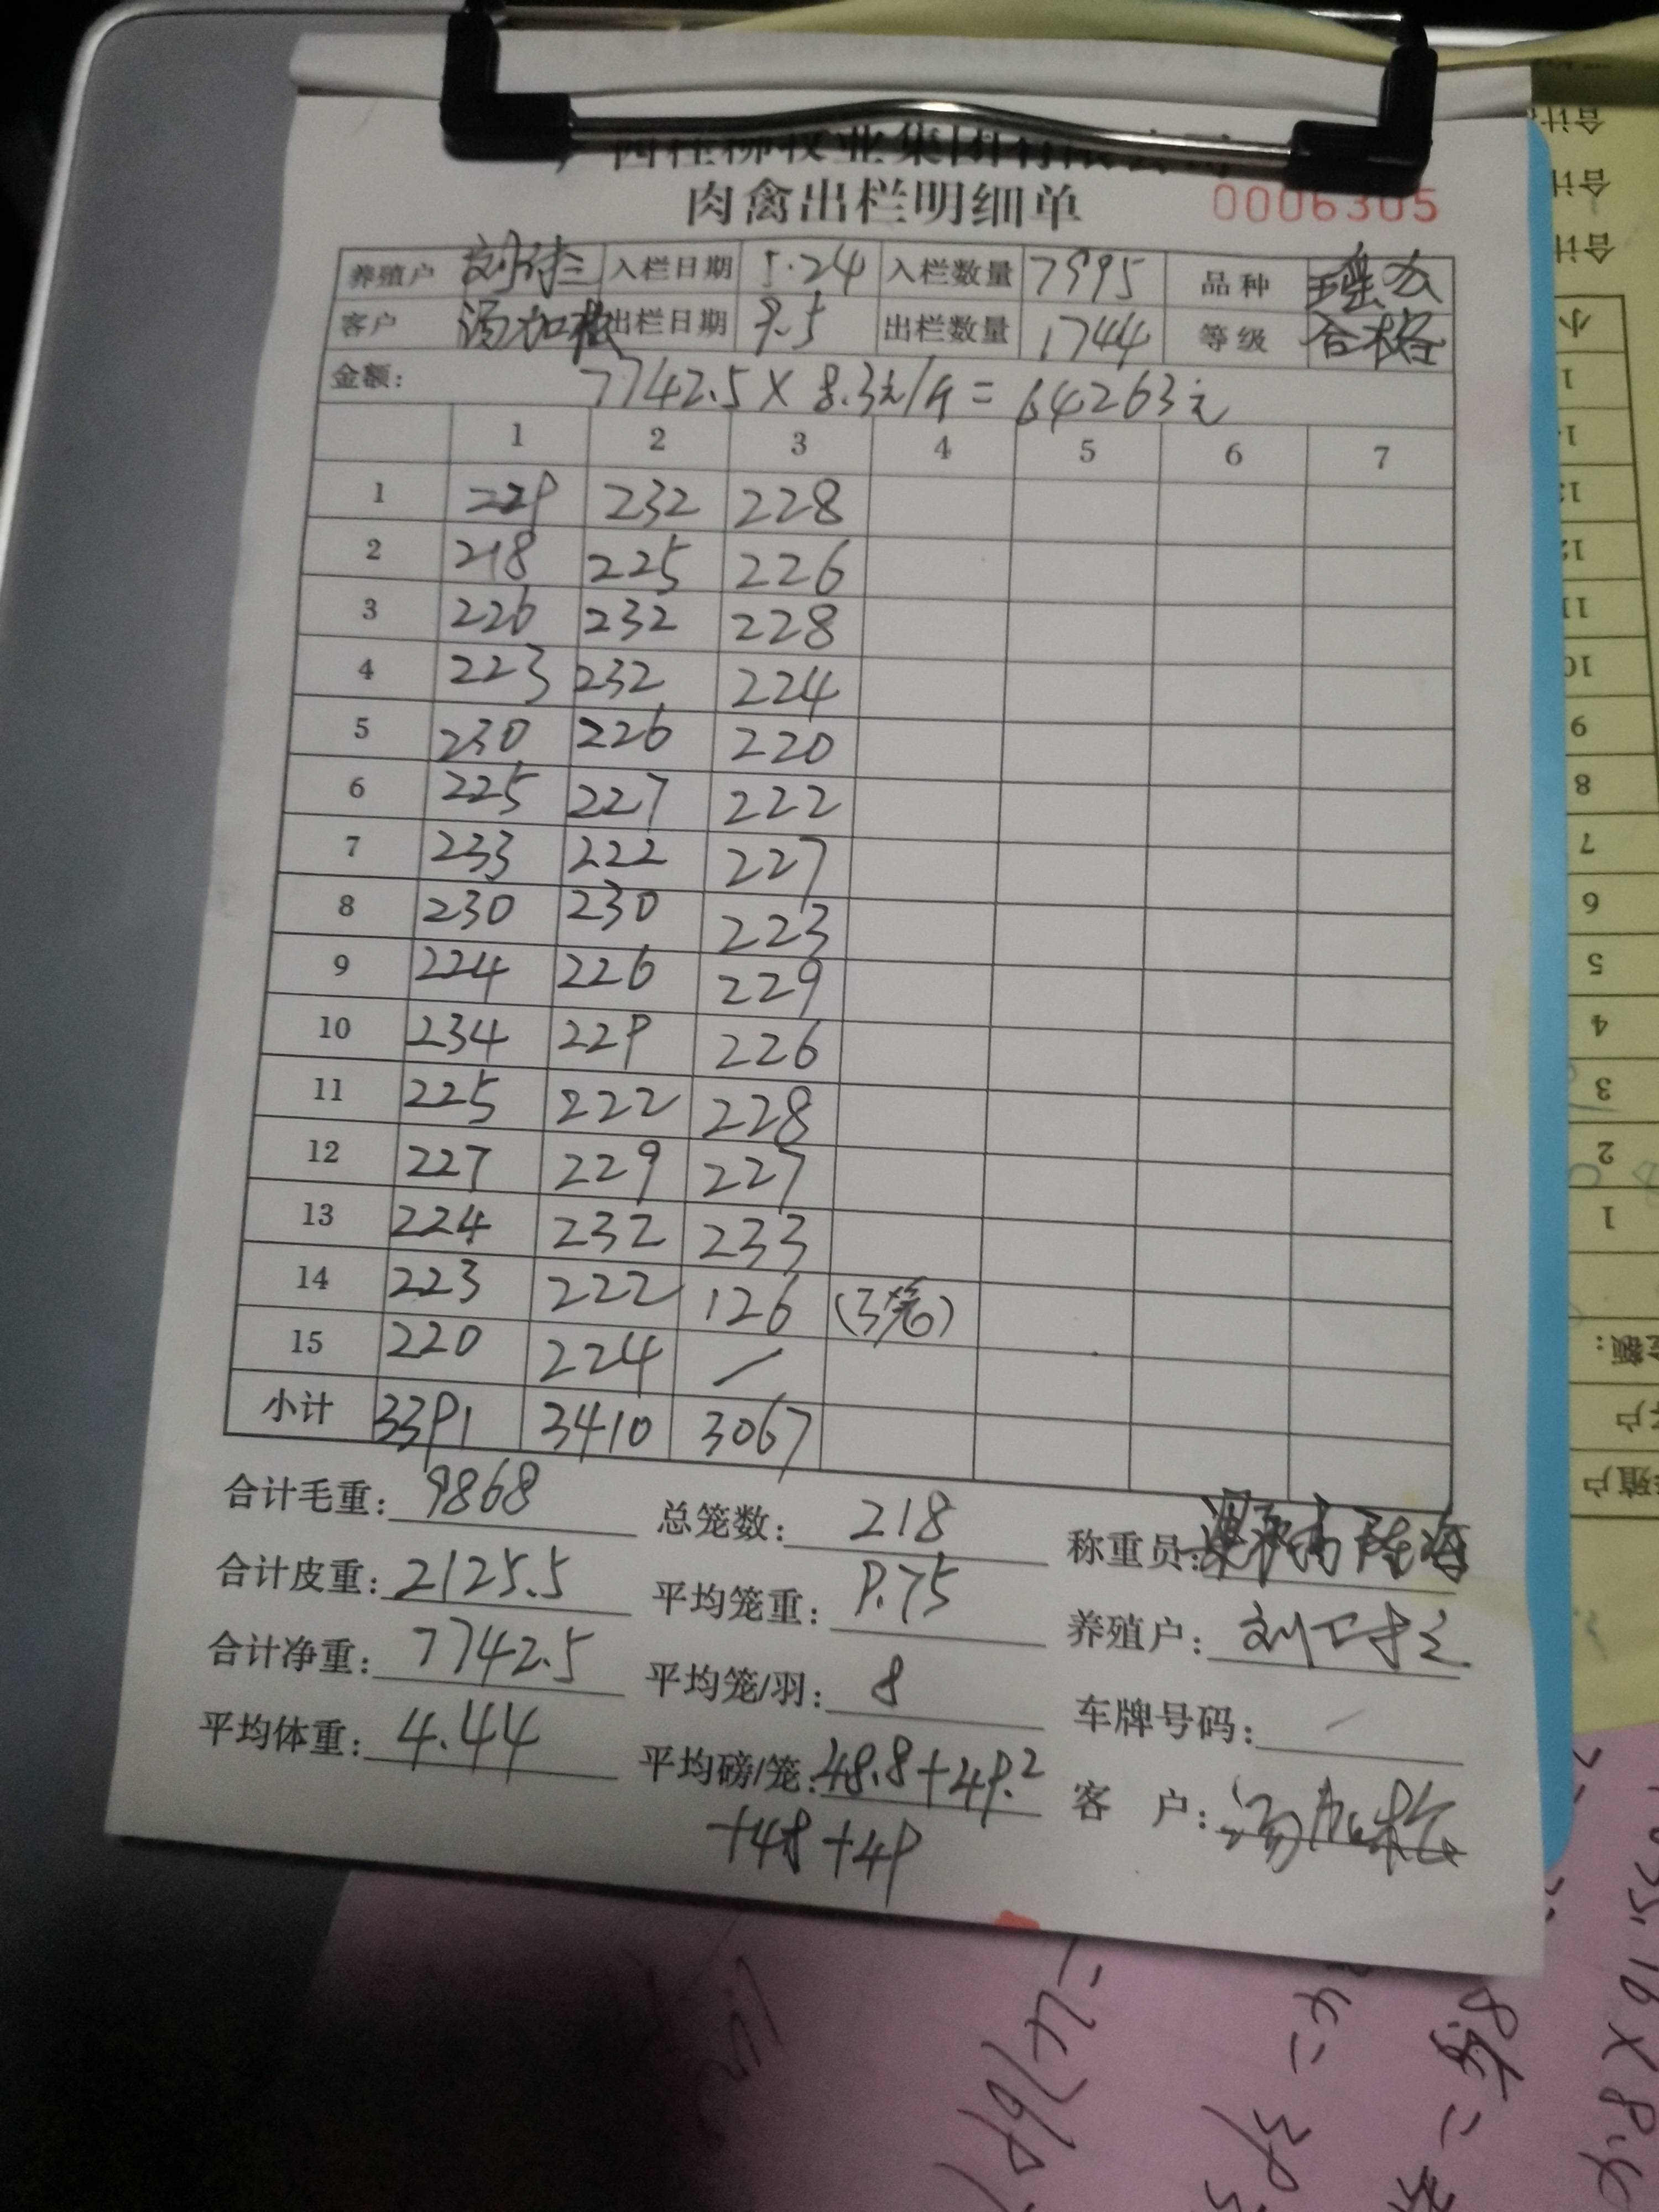 广西桂柳牧业集团有限公司
肉禽出栏明细单 0006305
养殖户 入栏日期 5.24 入栏数量 7995 品种 瑶公
客户 汤加松 出栏日期 9.5 出栏数量 1744 等级 合格
金额: 7742.5 × 8.3元/斤 = 64263元
1 2 3 4 5 6 7
1 229 232 228
2 218 225 226
3 226 232 228
4 223 232 224
5 230 226 220
6 225 227 222
7 233 222 227
8 230 230 223
9 224 226 229
10 234 229 226
11 225 222 228
12 227 229 227
13 224 232 233
14 223 222 126 (3笼)
15 220 224 /
小计 3391 3410 3067
合计毛重: 9868 总笼数: 218 称重员:
合计皮重: 2125.5 平均笼重: 9.75 养殖户:
合计净重: 7742.5 平均笼/羽: 8 车牌号码: /
平均体重: 4.44 平均磅/笼: 48.8+49.2 客 户: 汤加松
+48+49